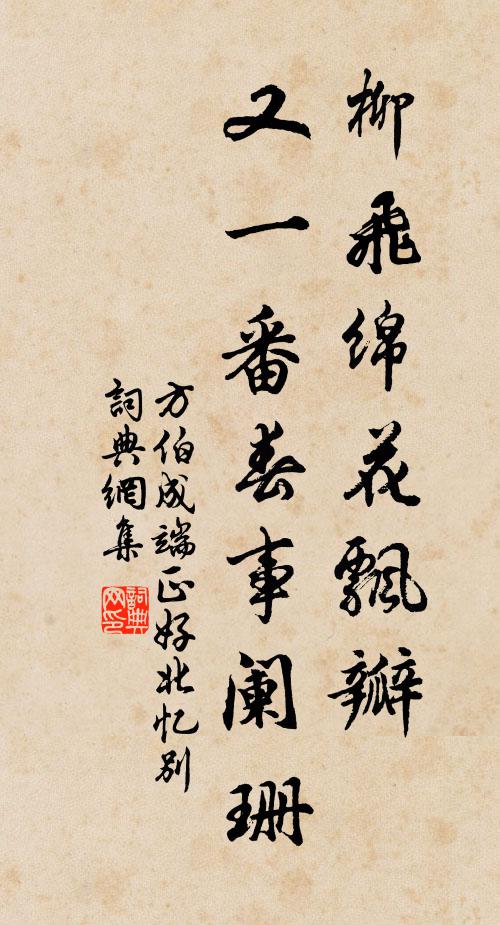 柳飛绵花飄瓣
又一番春事阑珊
方伯成端正好北忆别
詞典網集
詞典网印